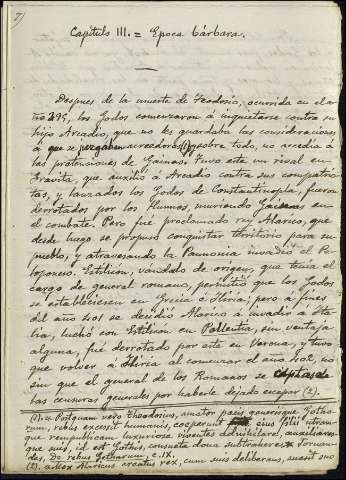 7)
Capítulo III. = Epoca bárbara.
Despues de la muerte de Teodosio, ocurrida en el
año 395, los Godos comenzaron á inquietarse contra su
hijo Arcadio, que no les guardaba las consideraciones
á que se juzgaban acreedores (1) y sobre todo, no accedia á
las pretensiones de Gainas. Tuvo este un rival en
Fravita, que auxilió á Arcadio contra sus compatrio
tas, y lanzados los Godos de Constantinopla, fueron
derrotados por los Hunnos, muriendo Gainas en
el combate. Pero fué proclamado rey Alarico, que
desde luego se propuso conquistar territorio para su
pueblo, y atravesando la Pannonia invadió el Pe
loponeso. Estilicon, vándalo de origen, que tenia el
cargo de general romano, permitió que los Godos
se estableciesen en Grecia é Iliria; pero á fines
del año 401 se decidió Alarico á invadir á Ita
lia, luchó con Estilicon en Pollentia, sin ventaja
alguna, fué derrotado por este en Verona, y tuvo
que volver á Iliria al comenzar el año 402, no
sin que el general de los Romanos se captase
las censuras generales por haberle dejado escapar (2).
(1). "Postquam vero Theodosius, amator pacis generisque Gotho-
rum, rebus excessit humanis, coeperunt eius filii utram-
que rempublicam luxuriose viventes adnihilare, auxiliares-
que suis, id est Gothis, consueta dona subtrahere." Jornan-
des, De rebus Gothorum, c. IX.
(2). Mox Alaricus creatus rex, cum suis deliberans, suasit suo